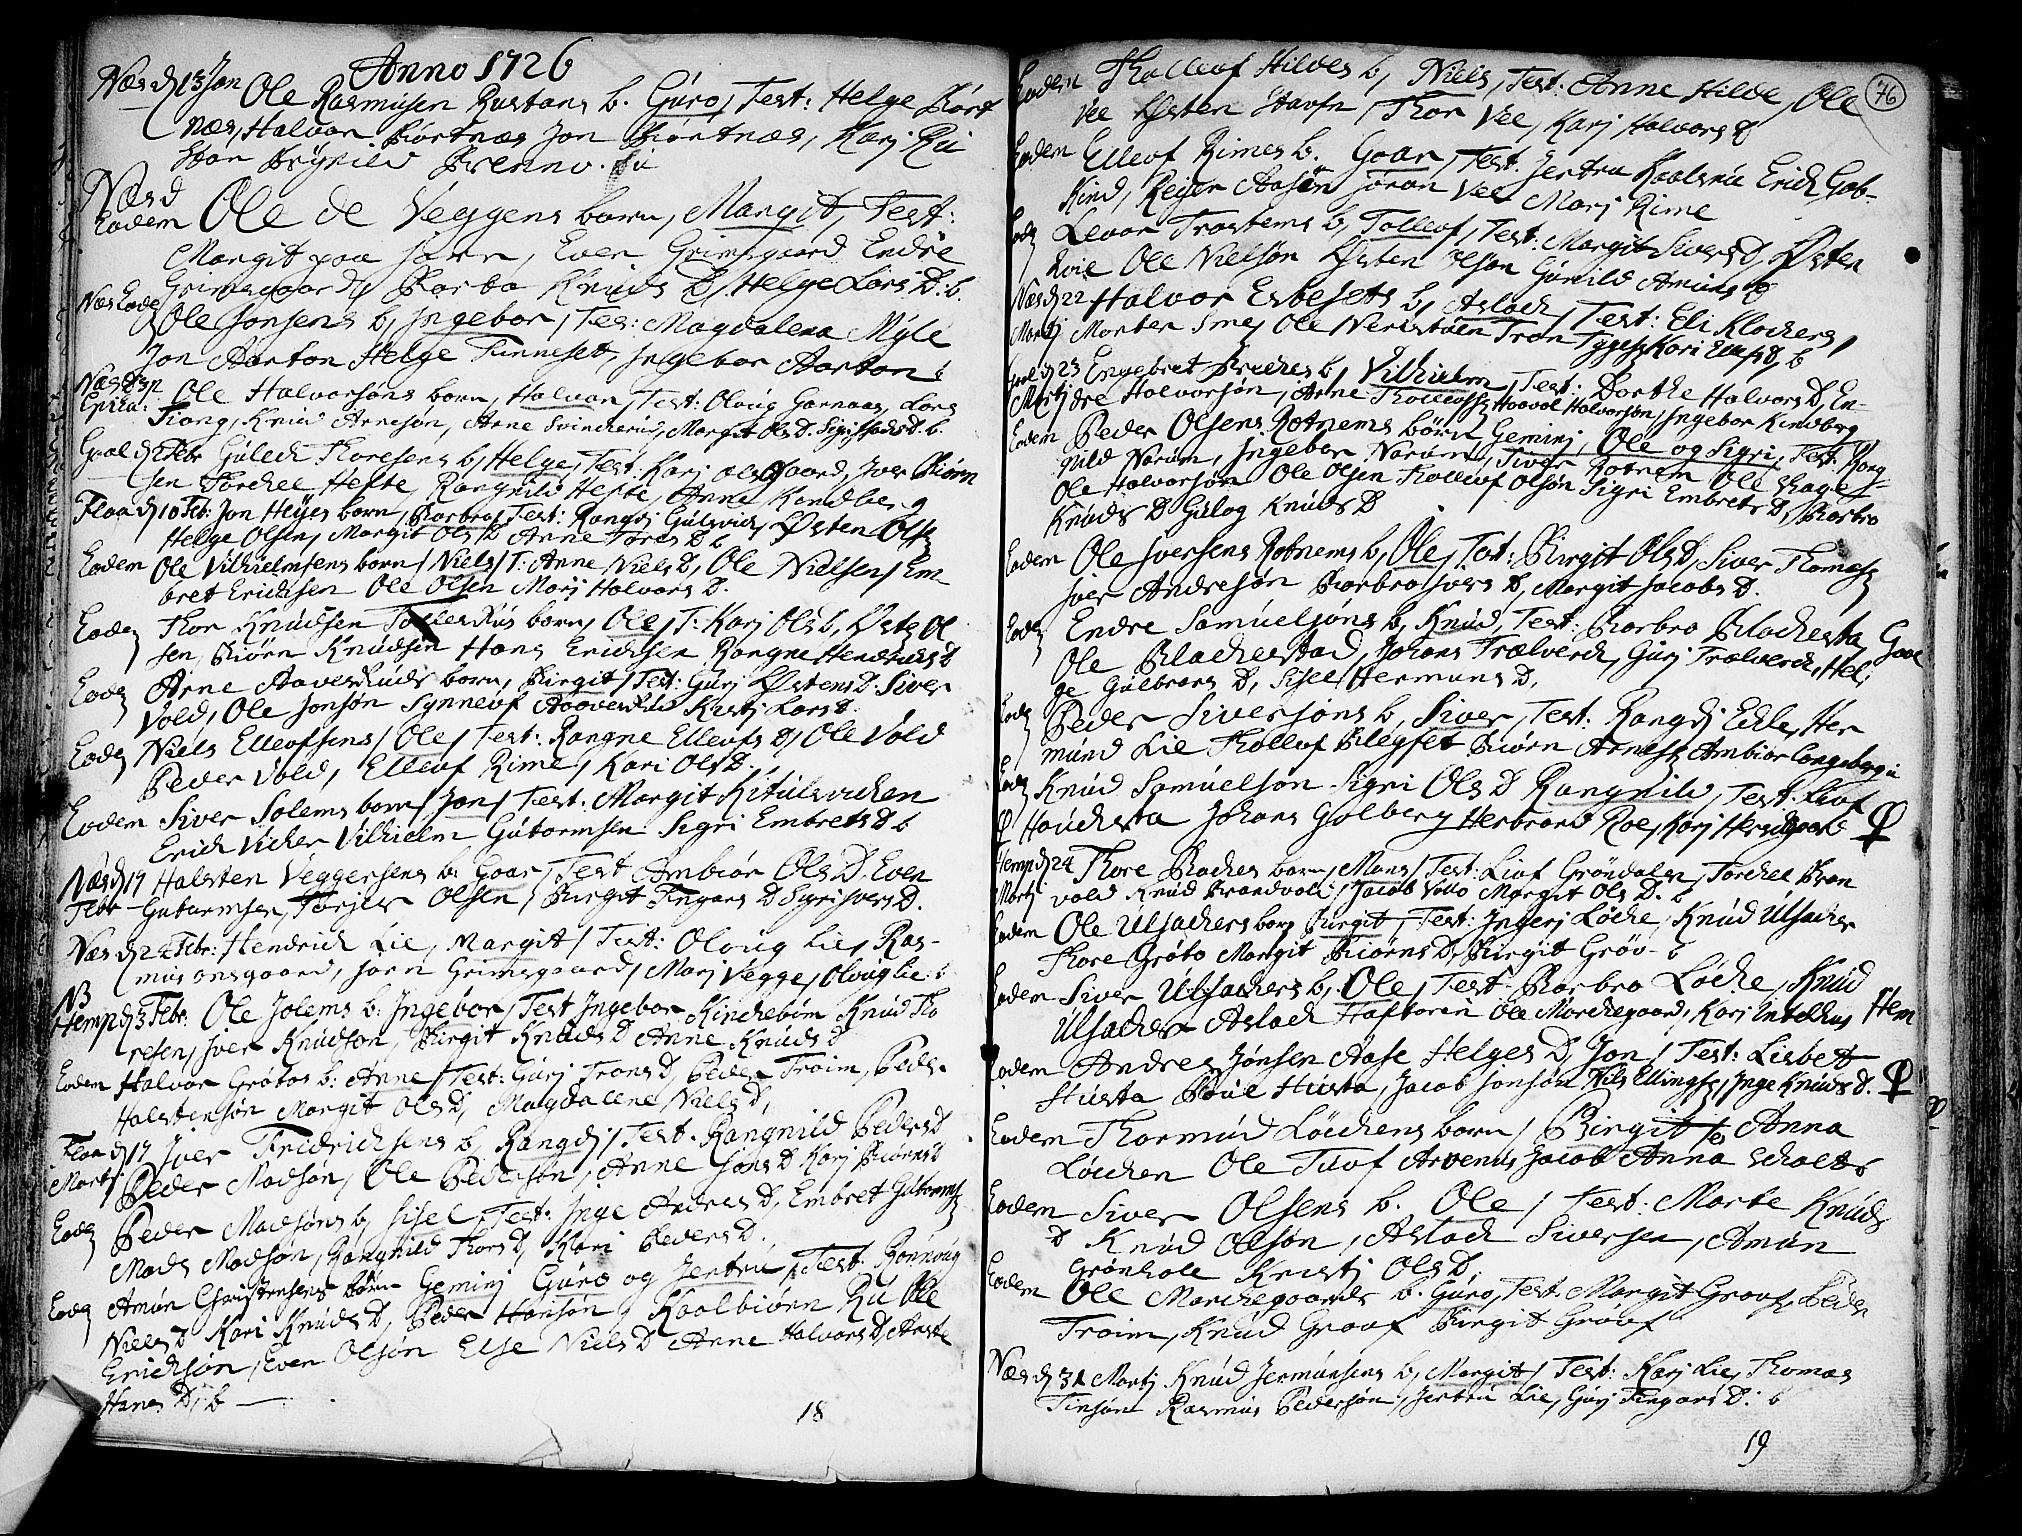 Anno 1726
Næs d 13 Jan Ole Rasmusen Rustans b. Guro, Test: Helge Biørt
næs, Halvor Biørtnæs Jon Biørtnæs, Karj Ru
Brynild Brenno
Næs d
Eodem Ole de Veggens barn, Margit, Test:
Margit paa Jørn, Even Grimsgaard Endre
Grimsgaard, Barbo Knuds D, Helge Lars D. b.
Næs Eode Ole Jonsens b, Ingebor, Tes: Magdalena Myle
Jon Aarton Helge Tunneset, Ingebor Aarton b
Ole Halvorsøns born, Halvor, Test: Oloug Garnaas, Lars
Epiha: Tiong, Knud Arnesøn, Arne Svinkerud, Margit Ols D.
Goel d 2 Febr Gulech Thoresens b, Helge, Test: Karj Olsgaard, Iver Biørn
sen Torchel Hefte, Rangnild Hefte, Anne Kindberg
Flaa d 10 Feb: Jon Heyes barn, Barbro, Test: Rangdj Gulsvich, Østen Ols
Helge Olsen, Margit Ols D Anne Tores D b
Eodem Ole Vilhielmsens born, Niels, T: Anne Niels D, Ole Nielsen, Em
bret Erichsen Ole Olsen Marj Halvors D.
Eodez Thor Knudsen barn, Ole, T: Karj Ols D, Østen Ol
sen, Biørn Knudsen Hans Erichsen Rangne Hendrichs D
Eodez Arne Aaverruds born, Birgit, Test: Gurj Østens D. Siver
Vold, Ole Jonsøn Synneuf Aaverud Kistj Lars D.
Eodez Niels Elleufsens, Ole, Test: Rangne Elleufs D, Ole Vold
Peder Vold, Elleuf Rime, Kari Ols D.
Eodem Siver Solems born, Jon, Test: Margit Kitulsvichen
Erich Vicher Vilhielm Gutormsen Sigri Embrets D b
Næs d 17 Halsten Veggersens b: Goar, Test Ambiør Ols D. Even
Febr Gutormsen, Torjer Olsen, Birgit Fingars D Sigri Ivers D.
Næs d 24 Febr: Hendrich Lie, Margit, Test: Oloug Lie, Ras-
mus Onsgaard, Jørn Grimsgaard, Marj Vegge, Oloug Lie: b
NB
Hemp d 3 Febr: Ole Jolems b: Ingebor, Test Ingebor Kinchebøm Knud Tho
resen, Iver Knudson, Birgit Knuds D Anne Knuds D
Eodem Halvor Grøtos b: Anne, Test: Gurj Trons D, Peder Troim, Peder
Halstensøn Margit Ols D, Magdalene Niels D,
Flaa d 17 Iver Fridrichsens b, Rangdj, Test. Rangnild Peders D
Martj Peder Madsøn, Ole Pedersøn, Anne Jons D Karj Biørns D
Eodez Peder Madsøns b, Sisel, Test: Inge Andres D, Embret Gutorms
Mads Madsøn, Rangnild Thors D, Kari Peders D.
Eodez Amun Christensens børn Geminj Guro og Jertru, Test: Rønnoug
Niels D Kari Knuds D, Peder Hansøn, Kaalbiørn Ru Ole
Erichsøn, Even Olsøn Else Niels D Anne Halvors D, Anne
Hans D, b
18
76
Eodem Tholleuf Hildes b, Niels, Test: Anne Hilde, Ole
Vee Østen Stavn, Thor Vee, Karj Halvors D
Eodem Elleuf Rimes b. Goar, Test: Jertru Kaalsrud Erich Gol-
Kind, Reier Aasen Jøran Vee Marj Rime
Eodz Levor Trostems b, Tolleuf, Test: Margit Sivers D, Østen
Ole Nielsøn Østen Olsøn Gunild Amuns D
Næs d 22 Halvor Esbesets b, Aslach, Test: Eli Klochers,
Martj Morten Sme, Ole Nerbstuen Tron Kari Ellefs D, b
Goel d 23 Engebret Bruches b, Vilhielm, Test: Dorthe Halvors D, En-
Martj dre Halvorsøn, Arne Tholleufs, Haavol Halvorsøn, Ingebor Kindberg
Eodem Peder Olsens Rotnems børn Geminj, Ole og Sigri, Test: Rang-
nild Narum, Ingebor Narum, Siver Rotnem Ole Hage,
Ole Halvorsøn Ole Olsen Tholleuf Olsøn Sigri Embrets D, Barbro
Knuds D Gulog Knuds D
Eodem Ole Iversens Rotnems b, Ole, Test: Birgit Ols D, Siver Thomes
Iver Andresøn Barbro Ivers D, Margit Jacobs D.
Eodez Endre Samuelsøns b, Knud, Test: Barbro Blachesta, Goel
Ole Blachestad, Johans Trælverch, Gurj Trælverch, Hel
ge Gulbrans D, Sisel Hermans D,
Eodz Peder Siversøns b, Siver, Test: Rangdj Eidle, Her
mund Lie Tholleuf Blegset Biørn Arnes Ambiør Langeberg
Eodz Knud Samuelsøn Sigri Ols D Rangnild, Test: Liuf
Hauchesta Johans Golberg Herbrand Roe, Karj
Hemp d 24 Thore Baches barn, Mons, Test: Liuf Grøndalen, Torchel Bran
Martj vold Knud Brandvold, Jacob Vøllo Margit Ols D. b
Eodem Ole Ulsachers barn Birgit, Test: Ingerj Løche, Knud Ulsacher
Thore Grøto Margit Biørns D, Birgit Grøv- b
Eodem Siver Ulsachers b, Ole, Test: Barbro Løche, Knud
Ulsacher Aslach Haftoren Ole Morchegaard, Karj Hem
Eodem Andres Jønsen Aase Helges D, Jon, Test: Lisbet
Husta Poul Husta, Jacob Jonsøn Nils Ellings, Inge Knuds D.
Eodem Thormod Løchens born, Birgit, Tes Anna
Løchen Ole Tuuf Jacob Anna Scholts
Eodem Siver Olsens b. Ole, Test: Marte Knuds
D Knud Olsøn, Aslach Siversen, Amun
Grønhole Kristj Ols D.
Eodem Ole Morchegaards b. Guro, Test: Margit Grøuf, Peder
Troim, Knud Grøuf Birgit Grøuf
Næs d 31 Martj Knud Jermunsens b, Margit, Test: Karj Lie, Thomas
Finsøn Rasmus Pedersøn, Jertru Lie, Gurj Fingars D: b
19